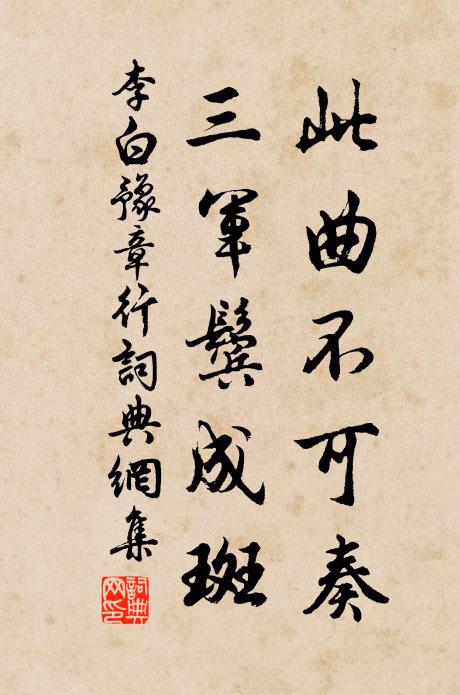 此曲不可奏
三軍鬢成斑
李白豫章行詞典網集
詞典網印